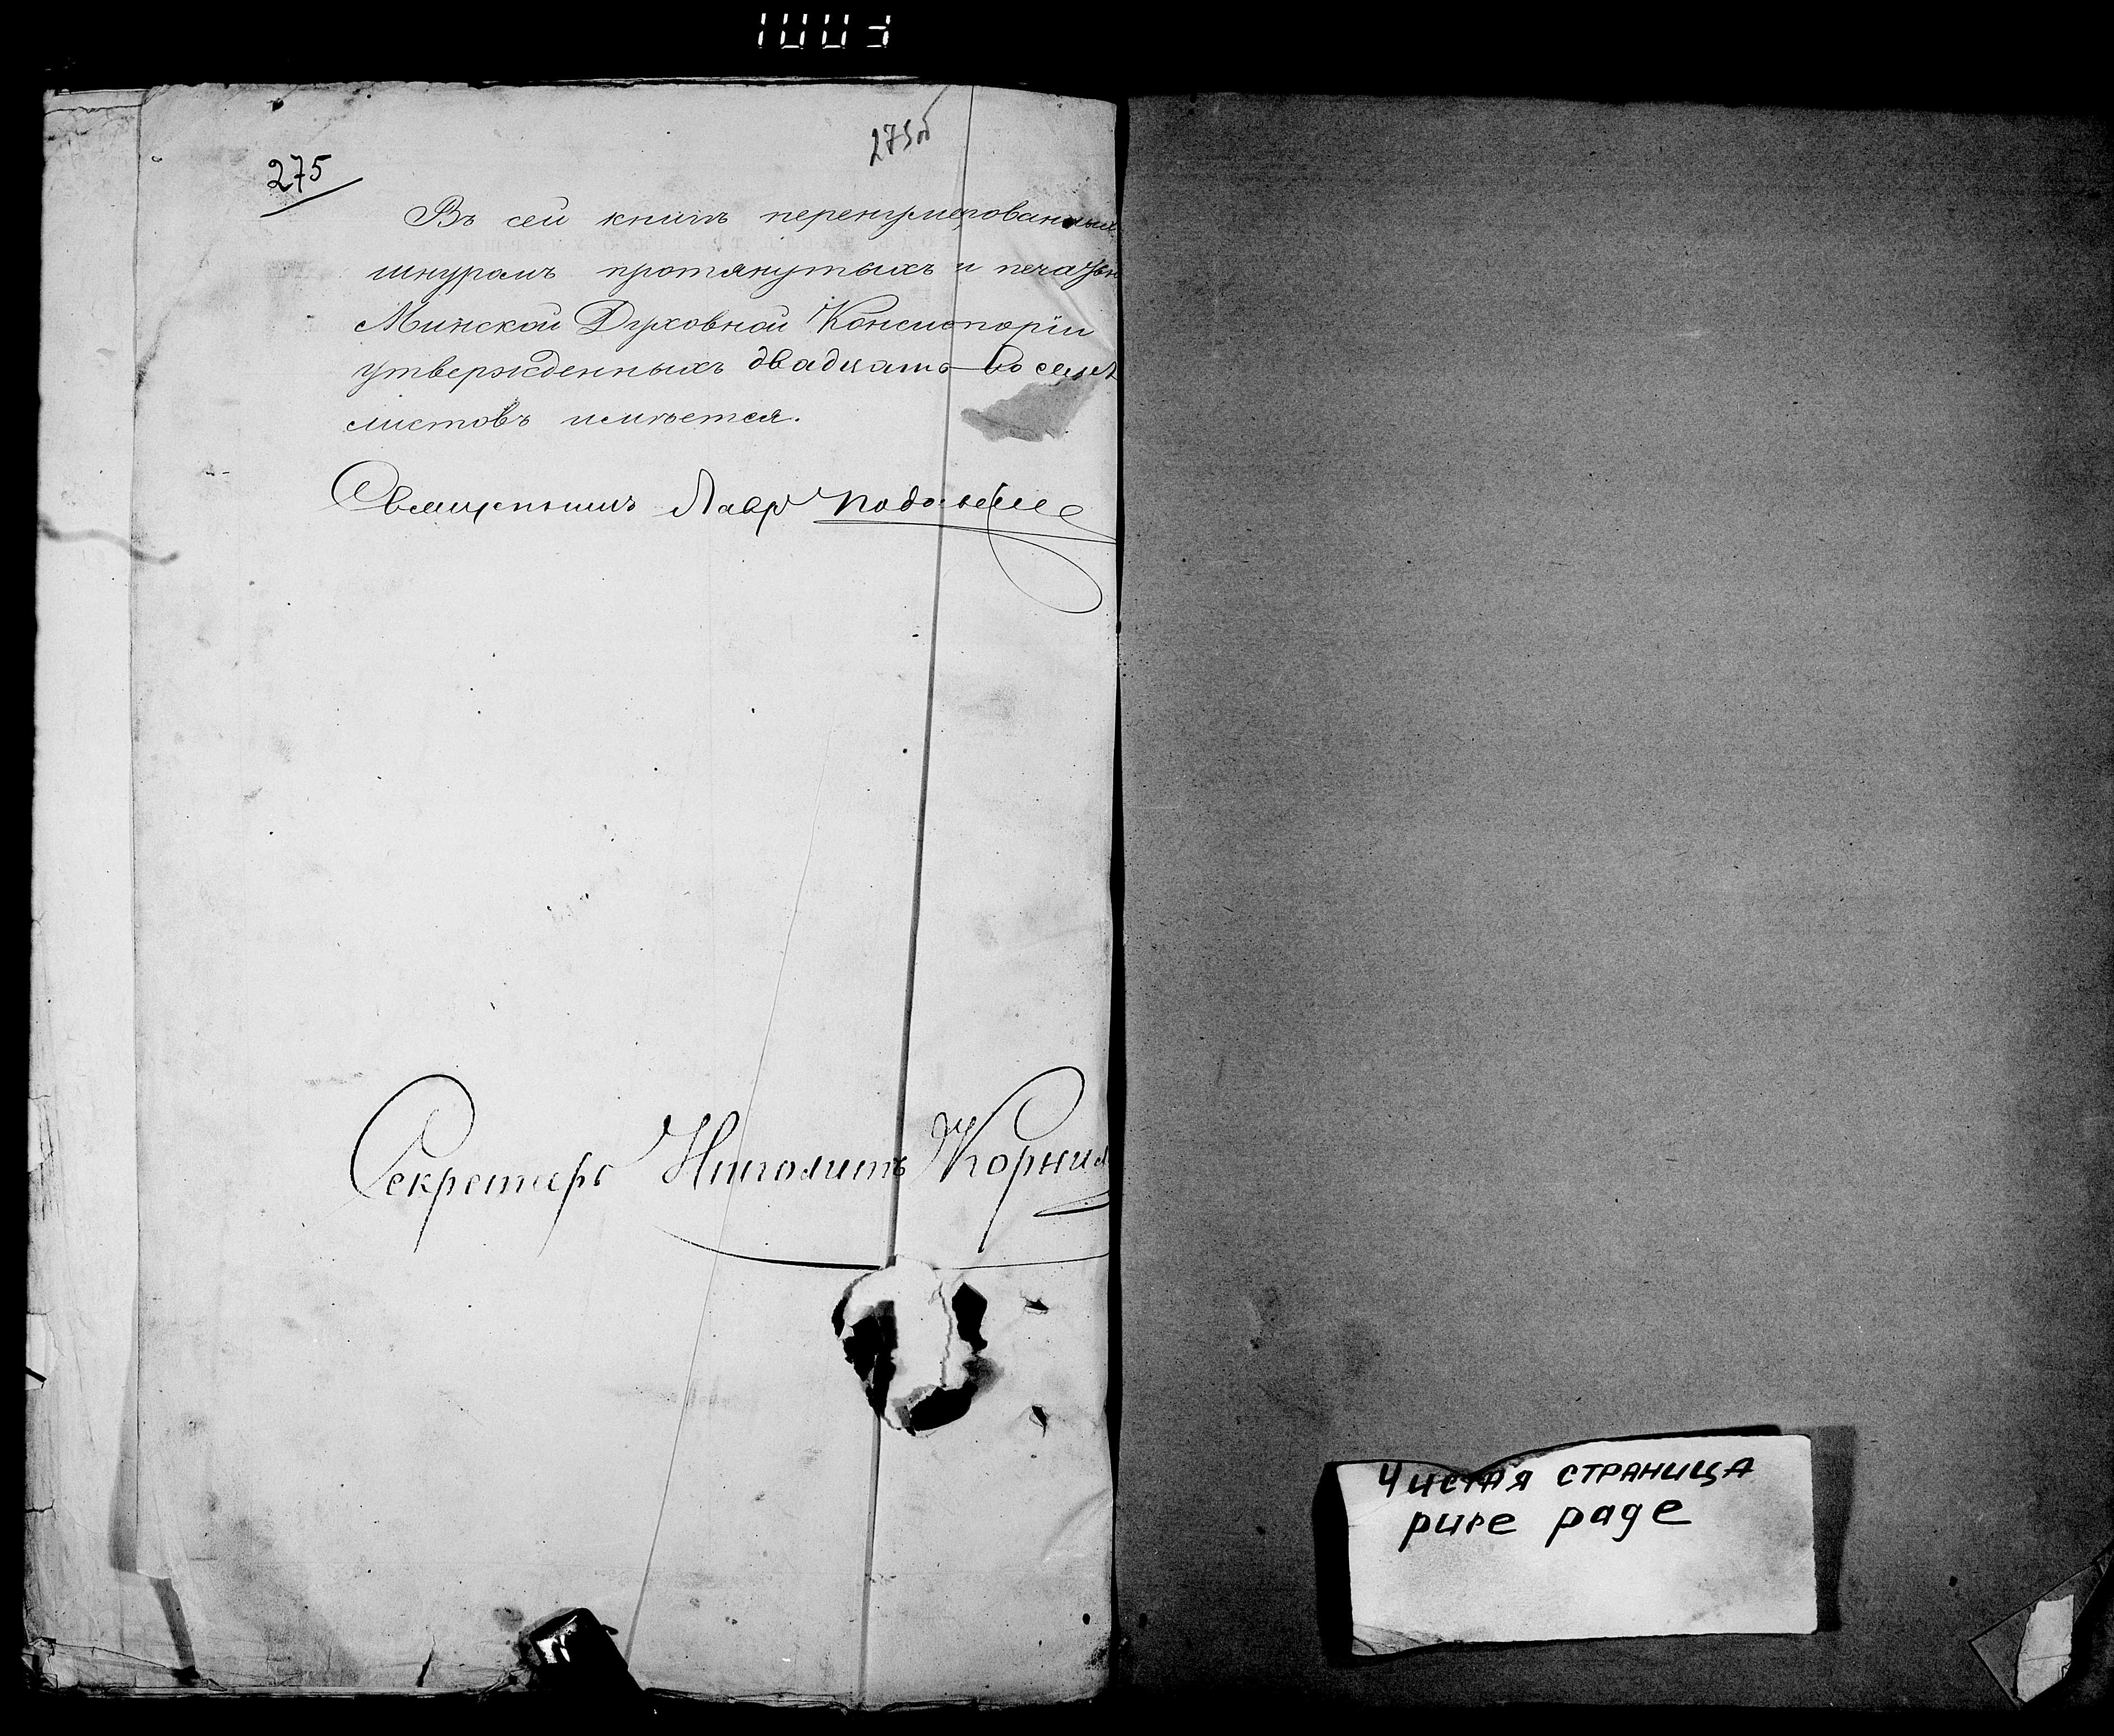 1003
275
275об
Въ сей книгѣ перенумерованныхъ
шнуромъ протянутыхъ и печатью
Минской Духовной Консисторіи
утвержденныхъ двадцать восемь
листовъ имѣется.
Священникъ Лавр
Секретарь Ипполитъ Корнил
Чистая страница
pure page